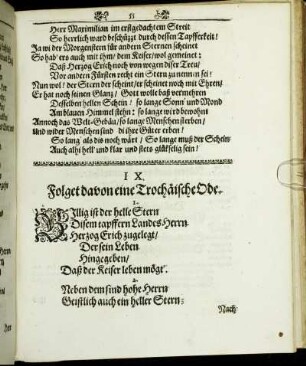 51
Herr Maximilian im erstgedachtem Streit
So herrlich ward beschützt durch dessen Tapfferkeit!
Ja wi der Morgenstern für andern Sternen scheinet
So hab' era auch mit ihm/ dem Keiser/ wol gemeinet:
Daß Herzog Erich noch von wegen diser Treu/
Vor andern Fürsten recht ein Stern zu nennen sei!
Nun wol! der Stern der scheint/ er scheinet noch mit Ehren/
Er hat noch seinen Glanz/ Gott wolle das vermehren
Desselben hellen Schein! so lange Sonn' und Mond
Am blauen Himmel stehn: so lange wird bewohnt
Annoch das Welt-Gebäu/ so lang' Menschen sterben/
Und wider Menschen sind di ihre Güter erben!
So lang' als dis noch wärt/ So lange muß der Schein/
Auch alhi hell' und klar und stets glükselig sein!
IX.
Folget davon eine Trochäische Ode.
1.
Billig ist der helle Stern
Disem tapffern Landes Herrn
Herzog Erich zugelegt/
Der sein Leben
Hingegeben/
Daß der Keiser leben mögt'.
2.
Neben dem sind hohe Herrn
Geistlich auch ein heller Stern:
Nach